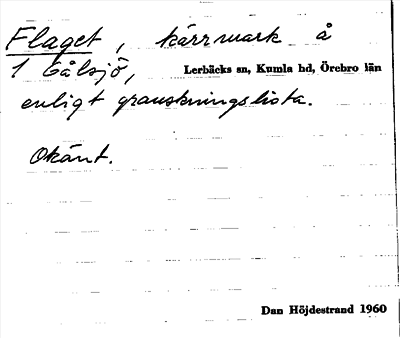 Flaget, kärrmark å
1 Gålsjö, Lerbäcks sn, Kumla hd, Örebro län
enligt granskningslista.
Okänt.
Dan Höjdestrand 1960